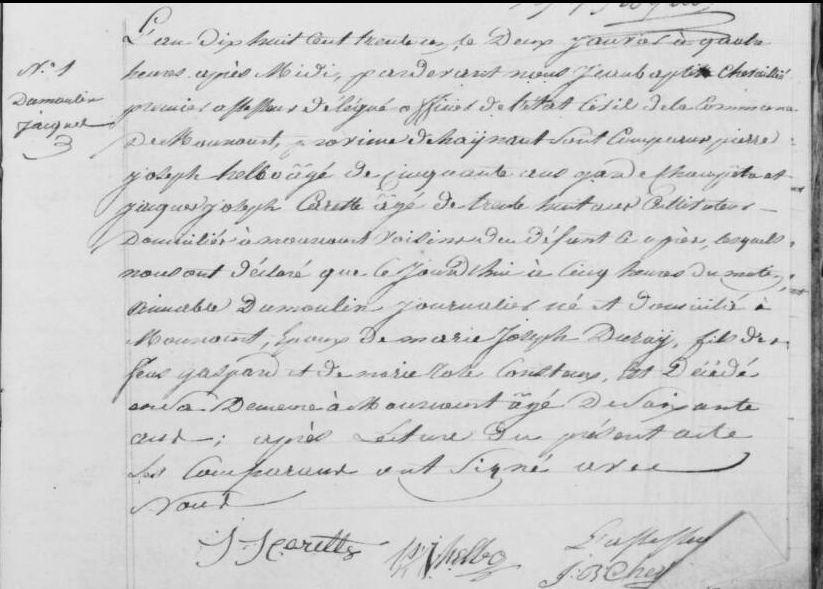 L'an dix huit cent trente un, le Deux janvier à quatre
N.° 1
heures après Midi, pardevant nous Jean baptiste
Dumoulin
premier assesseur délégué officier de l'état Civil de la Commune
jacques
De Mounourt, province de haynaut sont Comparus pierre
joseph helbo âgé de cinquante ans garde champêtre et
jacques joseph Carette âgé de trente huit ans Cultivateur
Domiciliés à mounourt voisins du défunt Ci après, lesquels
nous ont déclaré que ce jourd'hui à Cinq heures du matin
Dumoulin journalier né et domicilié à
Mounourt, Epoux De marie Joseph Duray, fils de
feus gaspard et de marie rose Consteux, est Décédé
en sa Demeure à Mounourt âgé De soixante
ans ; après Lecture du présent acte
les Comparans ont Signé avec
Nous
J. J. Carette
P J helbo
L'assesseur
J. B Che